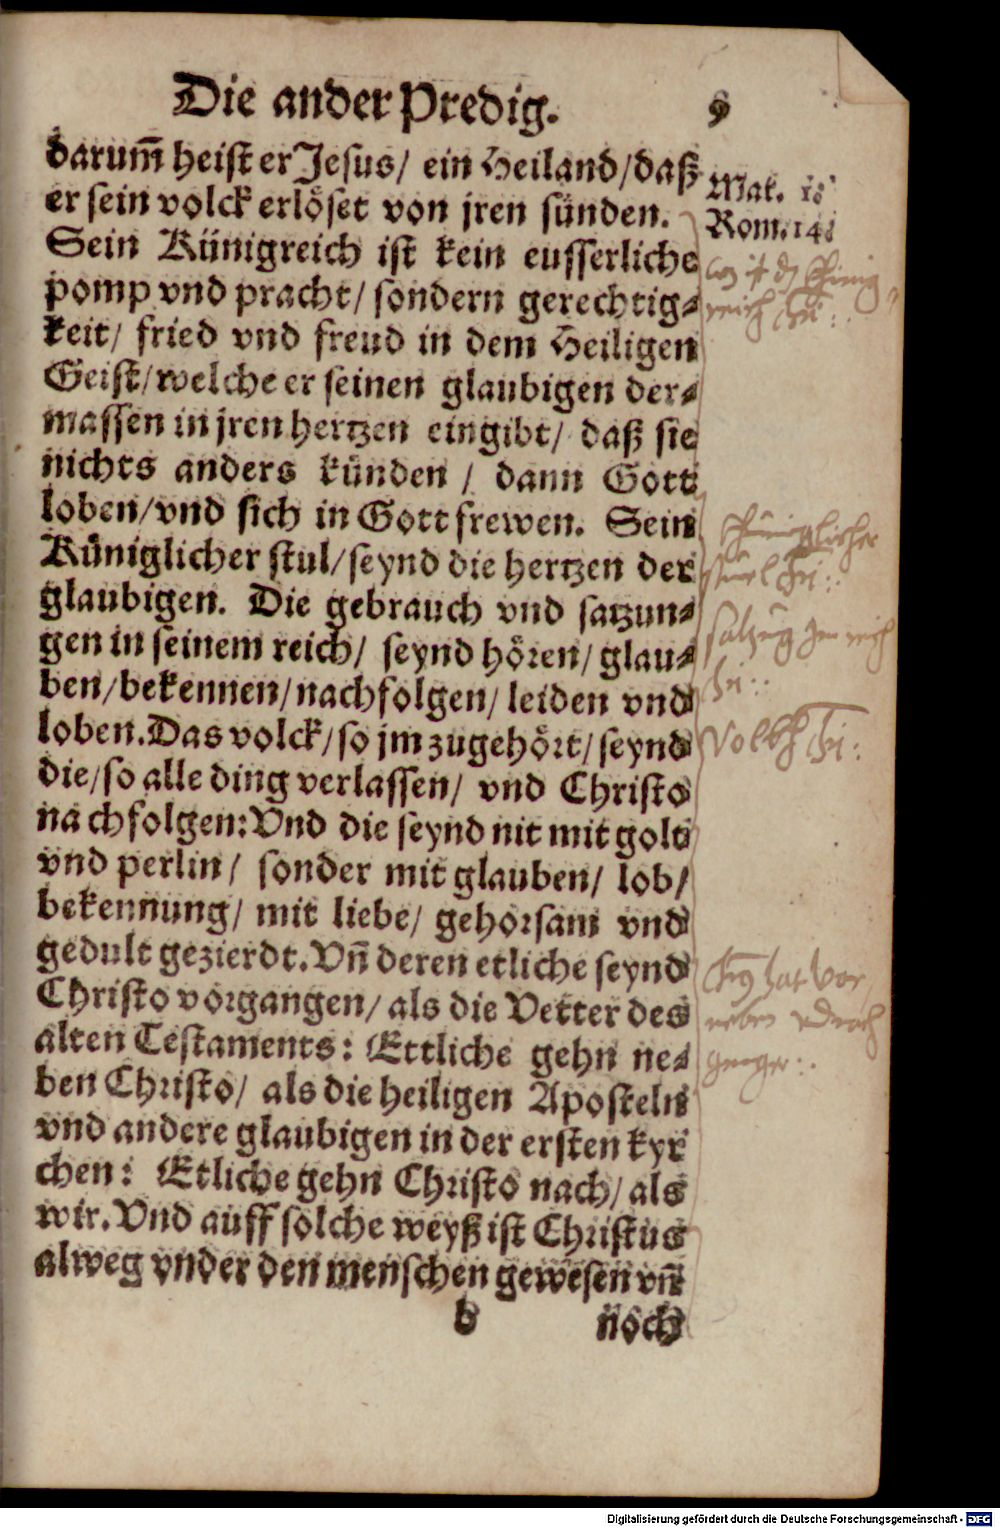 Die ander Predig. 9
darum̄ heist er Jesus/ ein Heiland/daß
er sein volck erlöset von jren sünden.
Mat. 1
Rom. 14
Sein Künigreich ist kein eusserliche
pomp vnd pracht/ sondern gerechtig⸗
keit/ fried vnd freud in dem Heiligen
Geist/welche er seinen glaubigen der⸗
massen in jren hertzen eingibt/ daß sie
nichts anders künden / dann Gott
loben/vnd sich in Gott frewen. Sein
Küniglicher stul/seynd die hertzen der
glaubigen. Die gebrauch vnd satzun⸗
gen in seinem reich/ seynd hören/ glau⸗
ben/bekennen/nachfolgen/ leiden vnd
loben.Das volck/so jm zugehört/seynd
die/so alle ding verlassen/ vnd Christo
nachfolgen:Vnd die seynd nit mit gold
vnd perlin/ sonder mit glauben/ lob/
bekennung/ mit liebe/ gehorsam vnd
gedult gezierdt.Vn̄ deren etliche seynd
Christo vorgangen/ als die Vetter des
alten Testaments: Ettliche gehn ne⸗
ben Christo/ als die heiligen Aposteln
vnd andere glaubigen in der ersten kyr
chen: Etliche gehn Christo nach/ als
wir.Vnd auff solche weyß ist Christus
alweg vnder den menschen gewesen vn̄
b noch
Küniglicher
Volckh
Digitalisierung gefördert durch die Deutsche Forschungsgemeinschaft - DFG